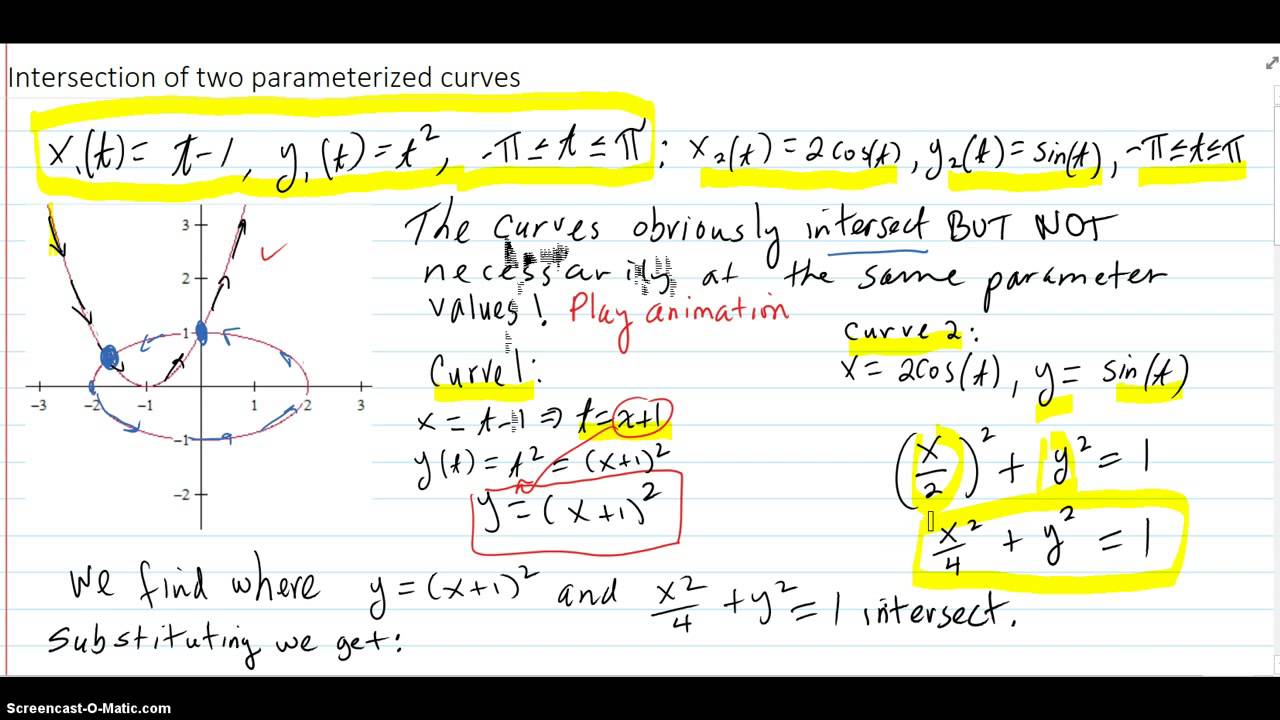 Intersection of two parameterized curves
x₁(t) = t-1, y₁(t) = t², -π ≤ t ≤ π ; x₂(t) = 2cos(t), y₂(t) = sin(t), -π ≤ t ≤ π
3
2
1
-3 -2 -1 1 2 3
-1
-2
The curves obviously intersect BUT NOT
necessarily at the same parameter
values! Play animation
Curve 1:
x = t-1 ⇒ t = x+1
y(t) = t² = (x+1)²
y = (x+1)²
Curve 2:
x = 2cos(t), y = sin(t)
(x/2)² + y² = 1
x²/4 + y² = 1
We find where y = (x+1)² and x2/4 + y² = 1 intersect.
Substituting we get:
Screencast-O-Matic.com